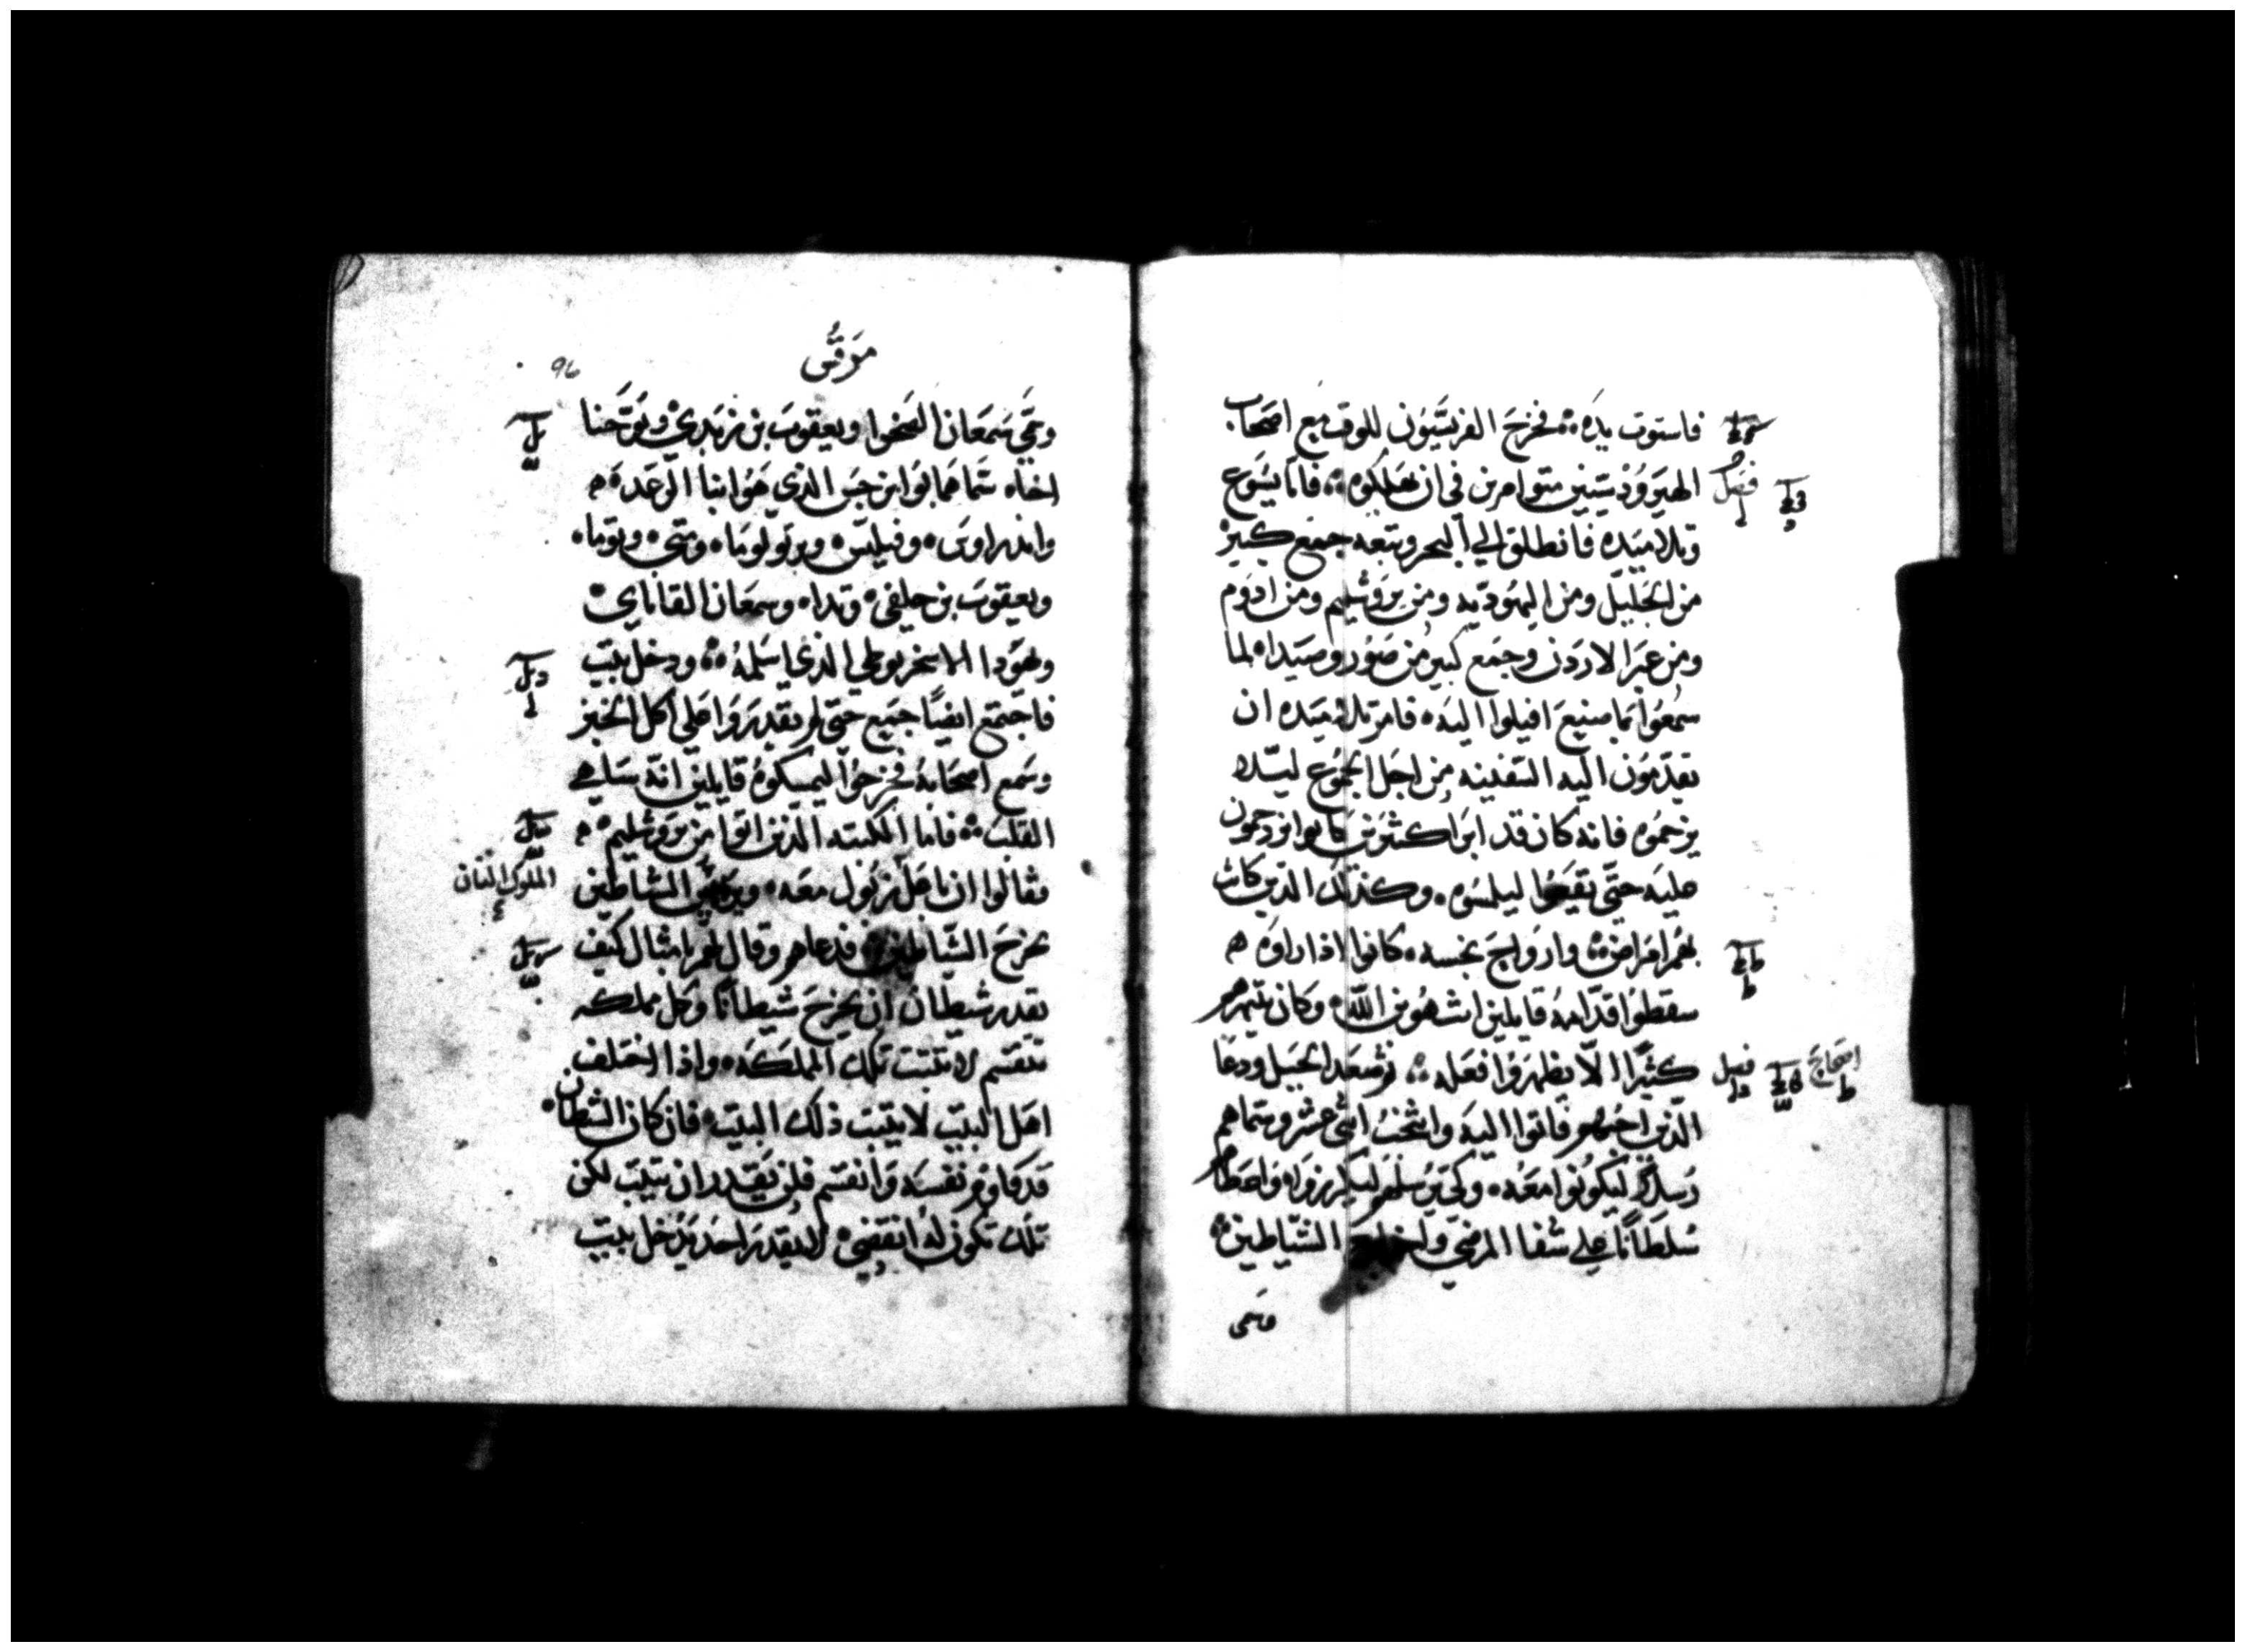 فاستوت يده ۞ فخرج الفريسيون للوقت مع اصحاب
الهيرودسيين متوامرين في ان يهلكوه ۞ فاما يسوع
وتلاميده فانطلق الي البحر وتبعه جمع كبير
من الجليل ومن اليهوديه ومن يروشليم ومن ادوم
ومن عبر الاردن وجمع كبير من صور وصيدا لما
سمعوا بما صنيع اقبلوا اليه فامر تلاميده ان
يقدمون اليه السفينه من اجل الجموع ليلا
يزحموه فانه كان قد ابرا كثيرين كانوا يزدحمون
عليه حتي ليلمسوه وكذلك الذين كانت
بهم امراض وارواح نجسه كانوا اذا راوه
سقطوا قدامه قايلين انت هو بن الله وكان ينتهرهم
كثيرا الا يظهروا فعله ۞ ثم صعد الجبل ودعا
الذين احبهم فاتوا اليه وانتخب اثني عشر وسماهم
رسلا ليكونوا معه وكي يرسلهم ليكرزوا واعطاهم
سلطانا علي شفا المرضي واخراج الشياطين
وسمي
مرقس
96
وسمي سمعان الصخرا ويعقوب بن زبدي ويوحنا
اخاه سماهما بوانرجس الذي هو ابنا الرعده
واندراوس وفيلبس وبرتولوما ومتي وتوما
ويعقوب بن حلفي وتدا وسمعان القاناي
ويهودا الاسخريوطي الذي اسلمه ۞ ودخل بيت
فاجتمع ايضا جميع حتي لم يقدروا علي اكل الخبز
وسمع اصحابه فخرجوا ليمسكوه قايلين انه ساهي
القلب ۞ فاما الكتبه الذين اتوا من يروشليم
فقالوا ان باعل زبول معه الشياطين
يخرج الشياطين فدعاهم وقال لهم بامثال كيف
يقدر شيطان ان يخرج شيطانا وكل مملكه
تنقسم لا تثبت تلك المملكه واذا اختلف
اهل البيت لا يثبت ذلك البيت فان كان الشطان
قد قاوم نفسه وانقسم فلن يقدر ان يثبت لكن
تلك تكون له انقضي لا يقدر احد يدخل بيت